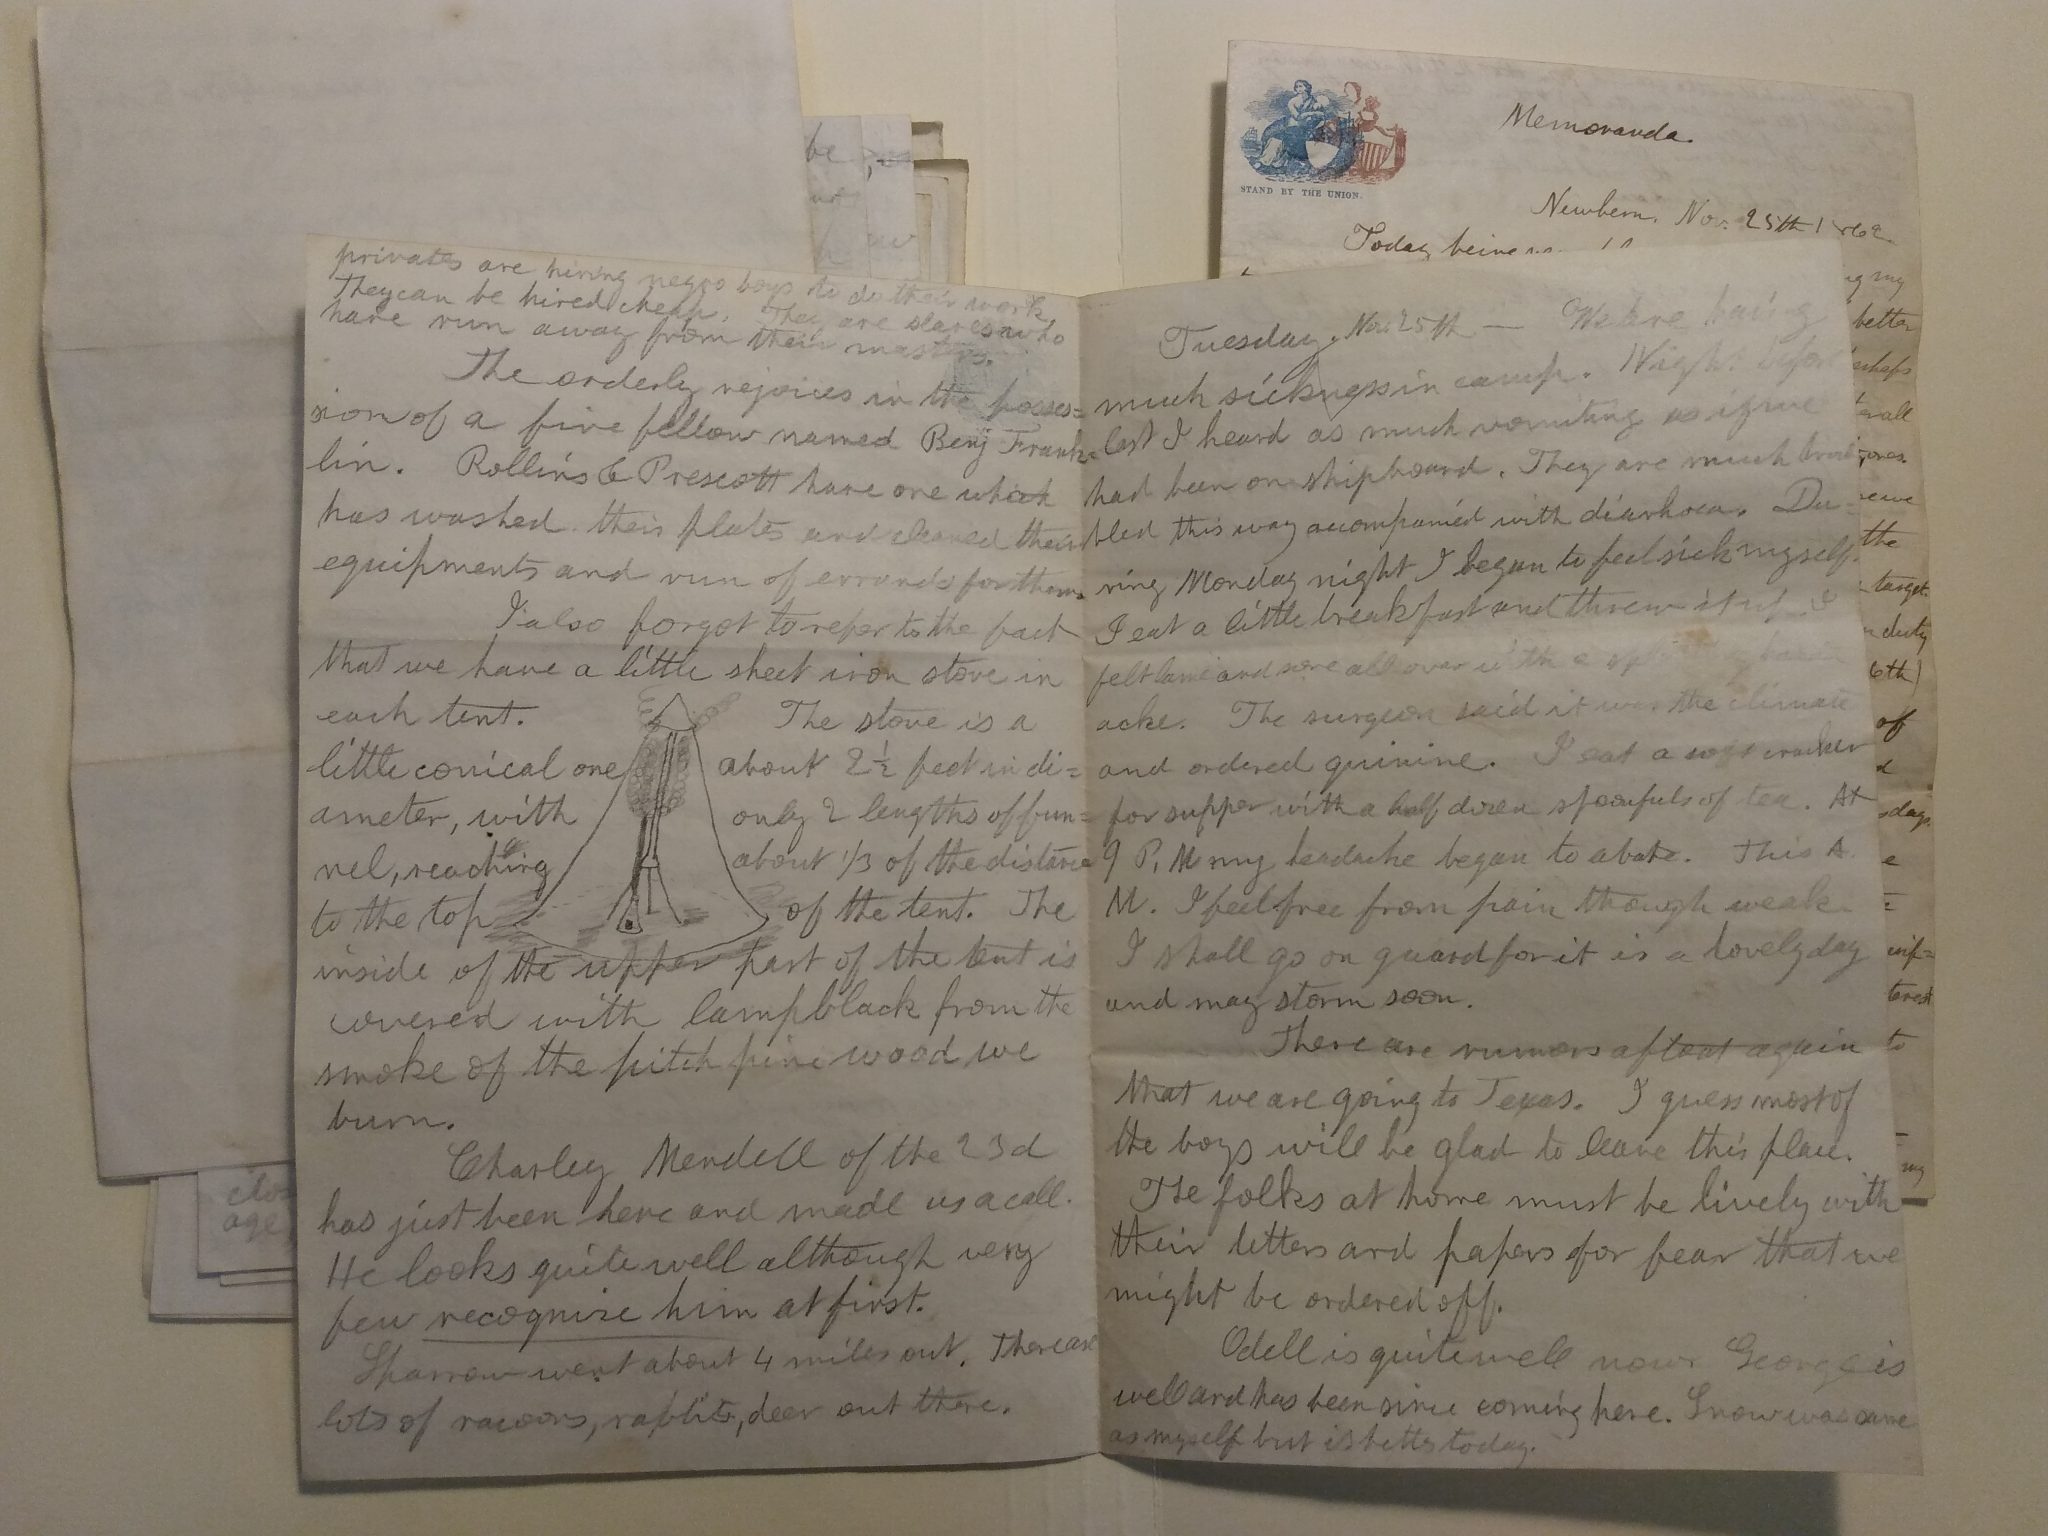 privates are hiring negro boys to do their work.
They can be hired cheap. They are slaves who
have run away from their masters.
The orderly rejoices in the posses=
sion of a fine fellow named Benj Frank=
lin. Rollins & Prescott have one which
has washed their plates and cleaned their
equipments and run of errands for them.
I also forgot to refer to the fact
that we have a little sheet iron stove in
each tent. The stove is a
little conical one about 2½ feet in di=
ameter, with only 2 lengths of fun=
nel, reaching about 1/3 of the distance
to the top of the tent. The
inside of the upper part of the tent is
covered with lampblack from the
smoke of the pitch pine wood we
burn.
Charley Mendell of the 23d
has just been here and made us a call.
He looks quite well although very
few recognise him at first.
Sparrow went about 4 miles out. There are
lots of racoons, rabbits, deer out there.
Tuesday, Nov 25th — We are having
much sickness in camp. Night before
last I heard as much vomiting as if we
had been on shipboard. They are much trou
bled this way accompanied with diarhoea. Du=
ring Monday night I began to feel sick myself.
I eat a little breakfast and threw it up. I
felt lame and sore all over with a
ache. The surgeon said it was the climate
and ordered quinine. I eat a cracker
for supper with a half dozen spoonfuls of tea. At
9 P. M my headache began to abate. This A.
M. I feel free from pain though weak
I shall go on guard for it is a lovely day
and may storm soon.
There are rumors afloat again
that we are going to Texas. I guess most of
the boys will be glad to leave this place.
The folks at home must be lively with
their letters and papers for fear that we
might be ordered off.
Odell is quite well now. George is
well and has been since coming here. Snow was same
as myself but is better today.
STAND BY THE UNION.
Memoranda.
Newbern. Nov. 25th 1862
Today being
my
better
all
the
target
duty
6th)
of
to
my
be
age